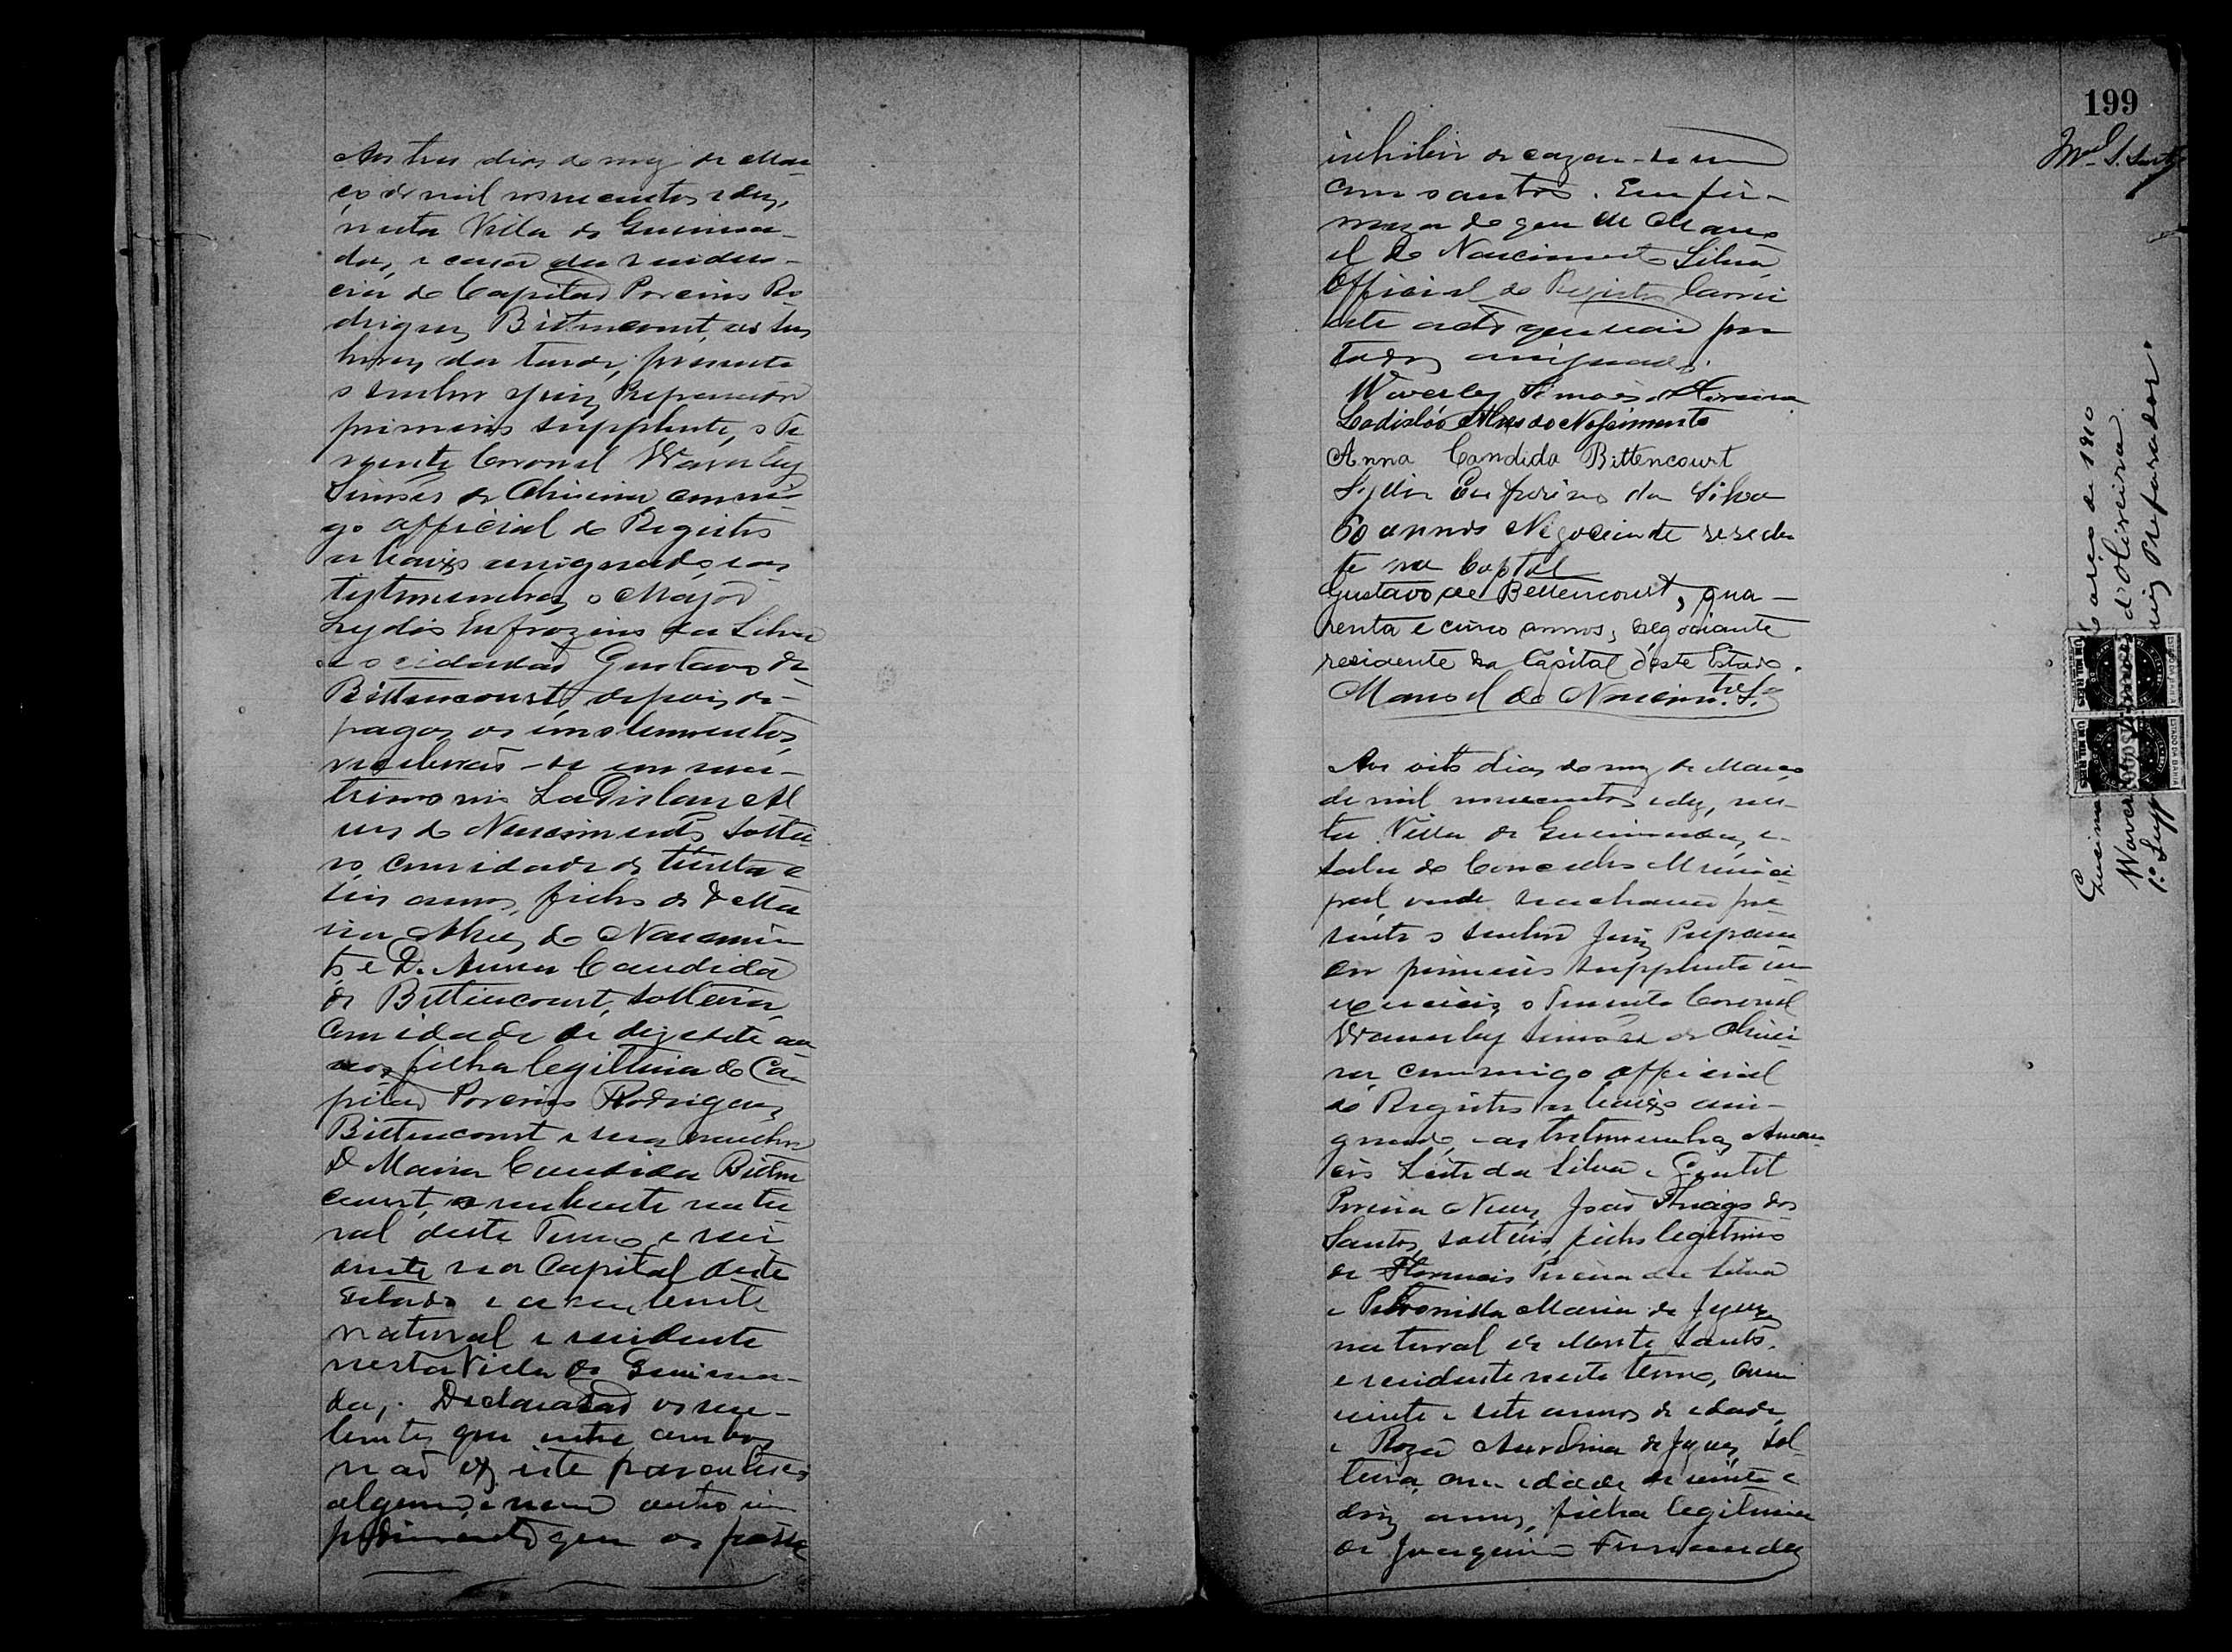 Aos tres dias do mez de Mar
ço de mil novecentos e dez,
nesta Villa de Queima-
das, e casa da residen-
cia do Capitão Porcino Ro
drigues Bittencourt, as tres
horas da tarde, presente
o senhor Juiz Preparador
primeiro supplente, o Te
nente Coronel Waverley
Simões de Oliveira commi
go official do Registro
abaixo assignado, e as
testemunhas o Major
Lydio Eufrozino da Silva
e o cidadão Gustavo de
Bittencourt, depois de
pagos os emolumentos,
receberão-se em ma-
trimonio Ladislau Al
ves do Nascimento, soltei
ro, com idade de trinta e
seis annos, filho de D Ma
ria Alves do Nascimen
to e D. Anna Candida
de Bittencourt, solteira,
com idade de dezesete an
nos filha legitima do Ca
pitão Porcino Rodrigues
Bittencourt e sua mulher
D Maria Candida Bitten
court, o nubente natu
ral deste Termo e resi
dente na Capital deste
Estado e a nubente
natural e residente
nesta Villa de Queima-
das. Declararão os nu-
bentes que entre ambos
não existe parentesco
algum, e nem outro im
pedimento que os possa
199
inhibir de cazar-se um
com o outro. Em fir-
meza do que eu Mano
el do Nascimento Silva,
Official do Registro lavrei
este acto que vai por
todos assignado.
Waverley Simões d'Oliveira
Ladisláo Alves do Nascimento
Anna Candida Bittencourt
Lydio Eufrozino da Silva
60 annos Negociante reside
te na Captal
Gustavo de Bettencourt, qua-
renta e cinco annos, negociante
residente na Capital d'este Estado.
Manoel do Nascim.to S.a
Aos oito dias do mez de Março
de mil novecentos e dez, nes-
ta Villa de Queimadas, e
sala do Conselho Munici
pal onde se achava pre
sente o senhor Juiz Prepara
dor primeiro supplente em
exercicio, o Tenente Coronel
Waverley Simões de Olivei
ra, commigo official
do Registro abaixo assi-
gnado, e as testemunhas Aman
cio Leite da Silva e Gentil
Pereira Nunes, João Thiago dos
Santos, solteiro, filho legitimo
de Pereira da Silva
e Petronilla Maria de Jesus,
natural de Monte Santo,
e residente neste termo, com
vinte e sete annos de edade,
e Roza Aurelina de Jesus, sol
teira, com edade de vinte e
dois annos, filha legitima
de Joaquim Fernandes
de 1910
Waverley Simões d'Oliveira
1º Supp Juiz Preparador.
ESTADO DA BAHIA
UM MIL REIS
ESTADO DA BAHIA
UM MIL REIS